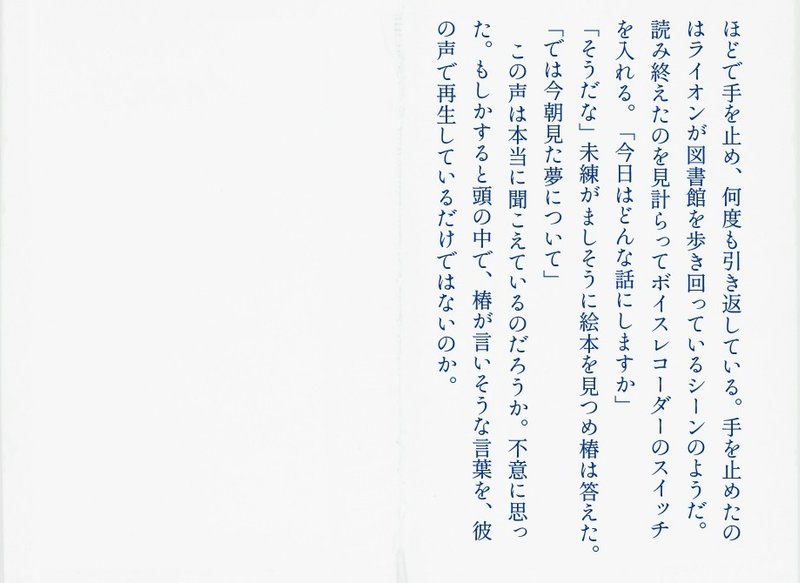 ほどで手を止め、何度も引き返している。手を止めたの
はライオンが図書館を歩き回っているシーンのようだ。
読み終えたのを見計らってボイスレコーダーのスイッチ
を入れる。「今日はどんな話にしますか」
「そうだな」未練がましそうに絵本を見つめ椿は答えた。
「では今朝見た夢について」
　この声は本当に聞こえているのだろうか。不意に思っ
た。もしかすると頭の中で、椿が言いそうな言葉を、彼
の声で再生しているだけではないのか。